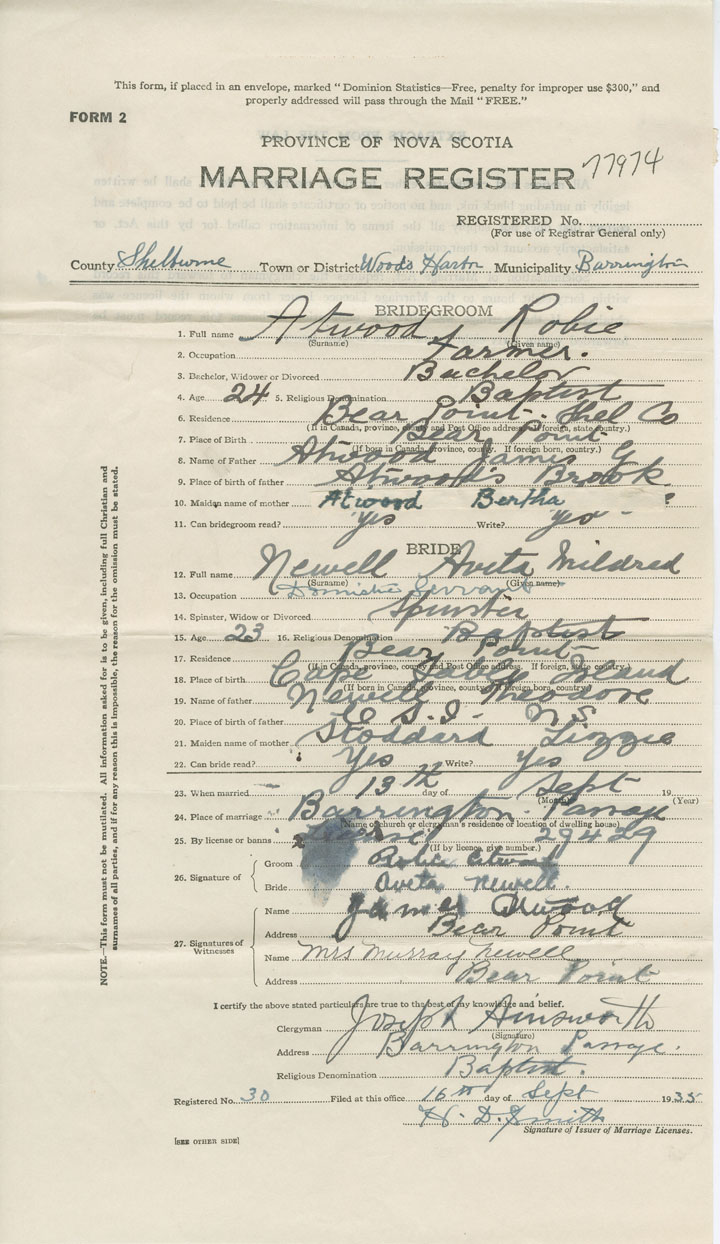 This form, if placed in an envelope, marked " Dominion Statistics—Free, penalty for improper use $300," and
properly addressed will pass through the Mail "FREE."
FORM 2
PROVINCE OF NOVA SCOTIA
77974
MARRIAGE REGISTER
REGISTERED No.
(For use of Registrar General only)
County Shelburne Town or District Woods Harbor Municipality Barrington
BRIDEGROOM
1. Full name Atwood, Robie
(Surname) (Given name)
2. Occupation Farmer.
3. Bachelor, Widower or Divorced Bachelor
4. Age 24 5. Religious Denomination Baptist
6. Residence Bear Point. Shel Co
(If in Canada, province, county and Post Office address. If foreign, state country.)
7. Place of Birth Bear Point
(If born in Canada, province, county. If foreign born, country.)
8. Name of Father Atwood James G
9. Place of birth of father Atwood's Brook
10. Maiden name of mother Atwood Bertha ?
11. Can bridegroom read? Yes Write? Yes
BRIDE
12. Full name Newell Avita Mildred
(Surname) (Given name)
13. Occupation Domestic Servant
14. Spinster, Widow or Divorced Spinster
15. Age 23 16. Religious Denomination Baptist
17. Residence Bear Point
(If in Canada, province, county and Post Office address. If foreign, state country.)
18. Place of birth Cape Sable Island
(If born in Canada, province, county. If foreign born, country)
19. Name of father Newell Theodore
20. Place of birth of father C. S. I. N.S.
21. Maiden name of mother Stoddard Lizzie
22. Can bride read? Yes Write? Yes
23. When married 13th day of Sept 19
(Month) (Year)
24. Place of marriage Barrington Passage
(Name of church or clergyman's residence or location of dwelling house)
25. By license or banns License 29429
(If by licence, give number.)
26. Signature of
Groom Robie Atwood
Bride Aveta Newell.
27. Signatures of Witnesses
Name James Atwood
Address Bear Point
Name Mrs Murray Newell
Address Bear Point
I certify the above stated particulars are true to the best of my knowledge and belief.
Clergyman Joseph Ainsworth
(Signature)
Address Barrington Passage.
Religious Denomination Baptist.
Registered No. 30 Filed at this office 16th day of Sept 1935
H. D. Smith
Signature of Issuer of Marriage Licenses.
[SEE OTHER SIDE]
NOTE.—This form must not be mutilated. All information asked for is to be given, including full Christian and
surnames of all parties, and if for any reason this is impossible, the reason for the omission must be stated.